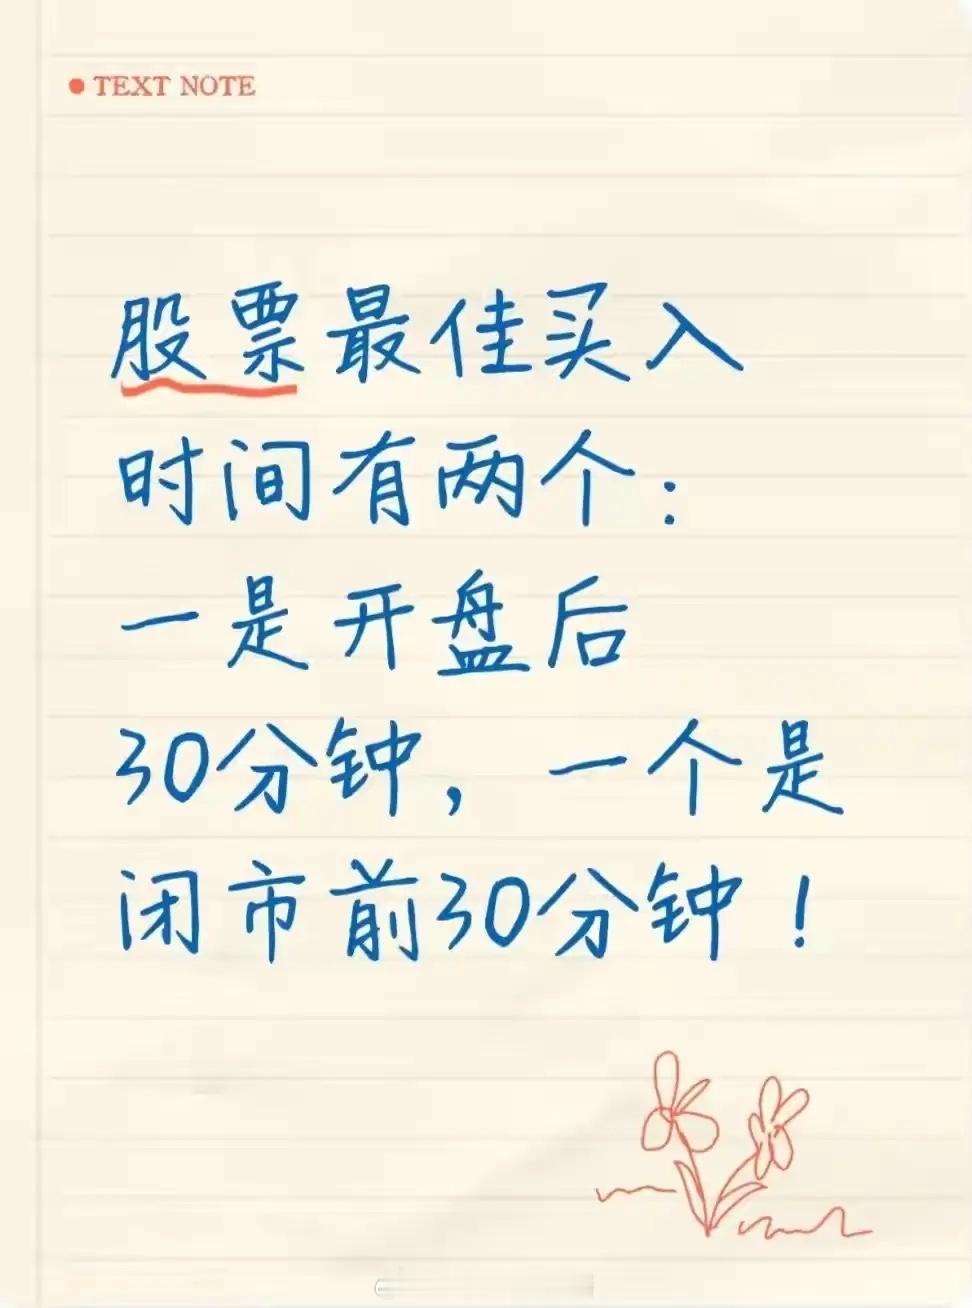 TEXT NOTE
股票最佳买入
时间有两个:
一是开盘后
30分钟，一个是
闭市前30分钟！